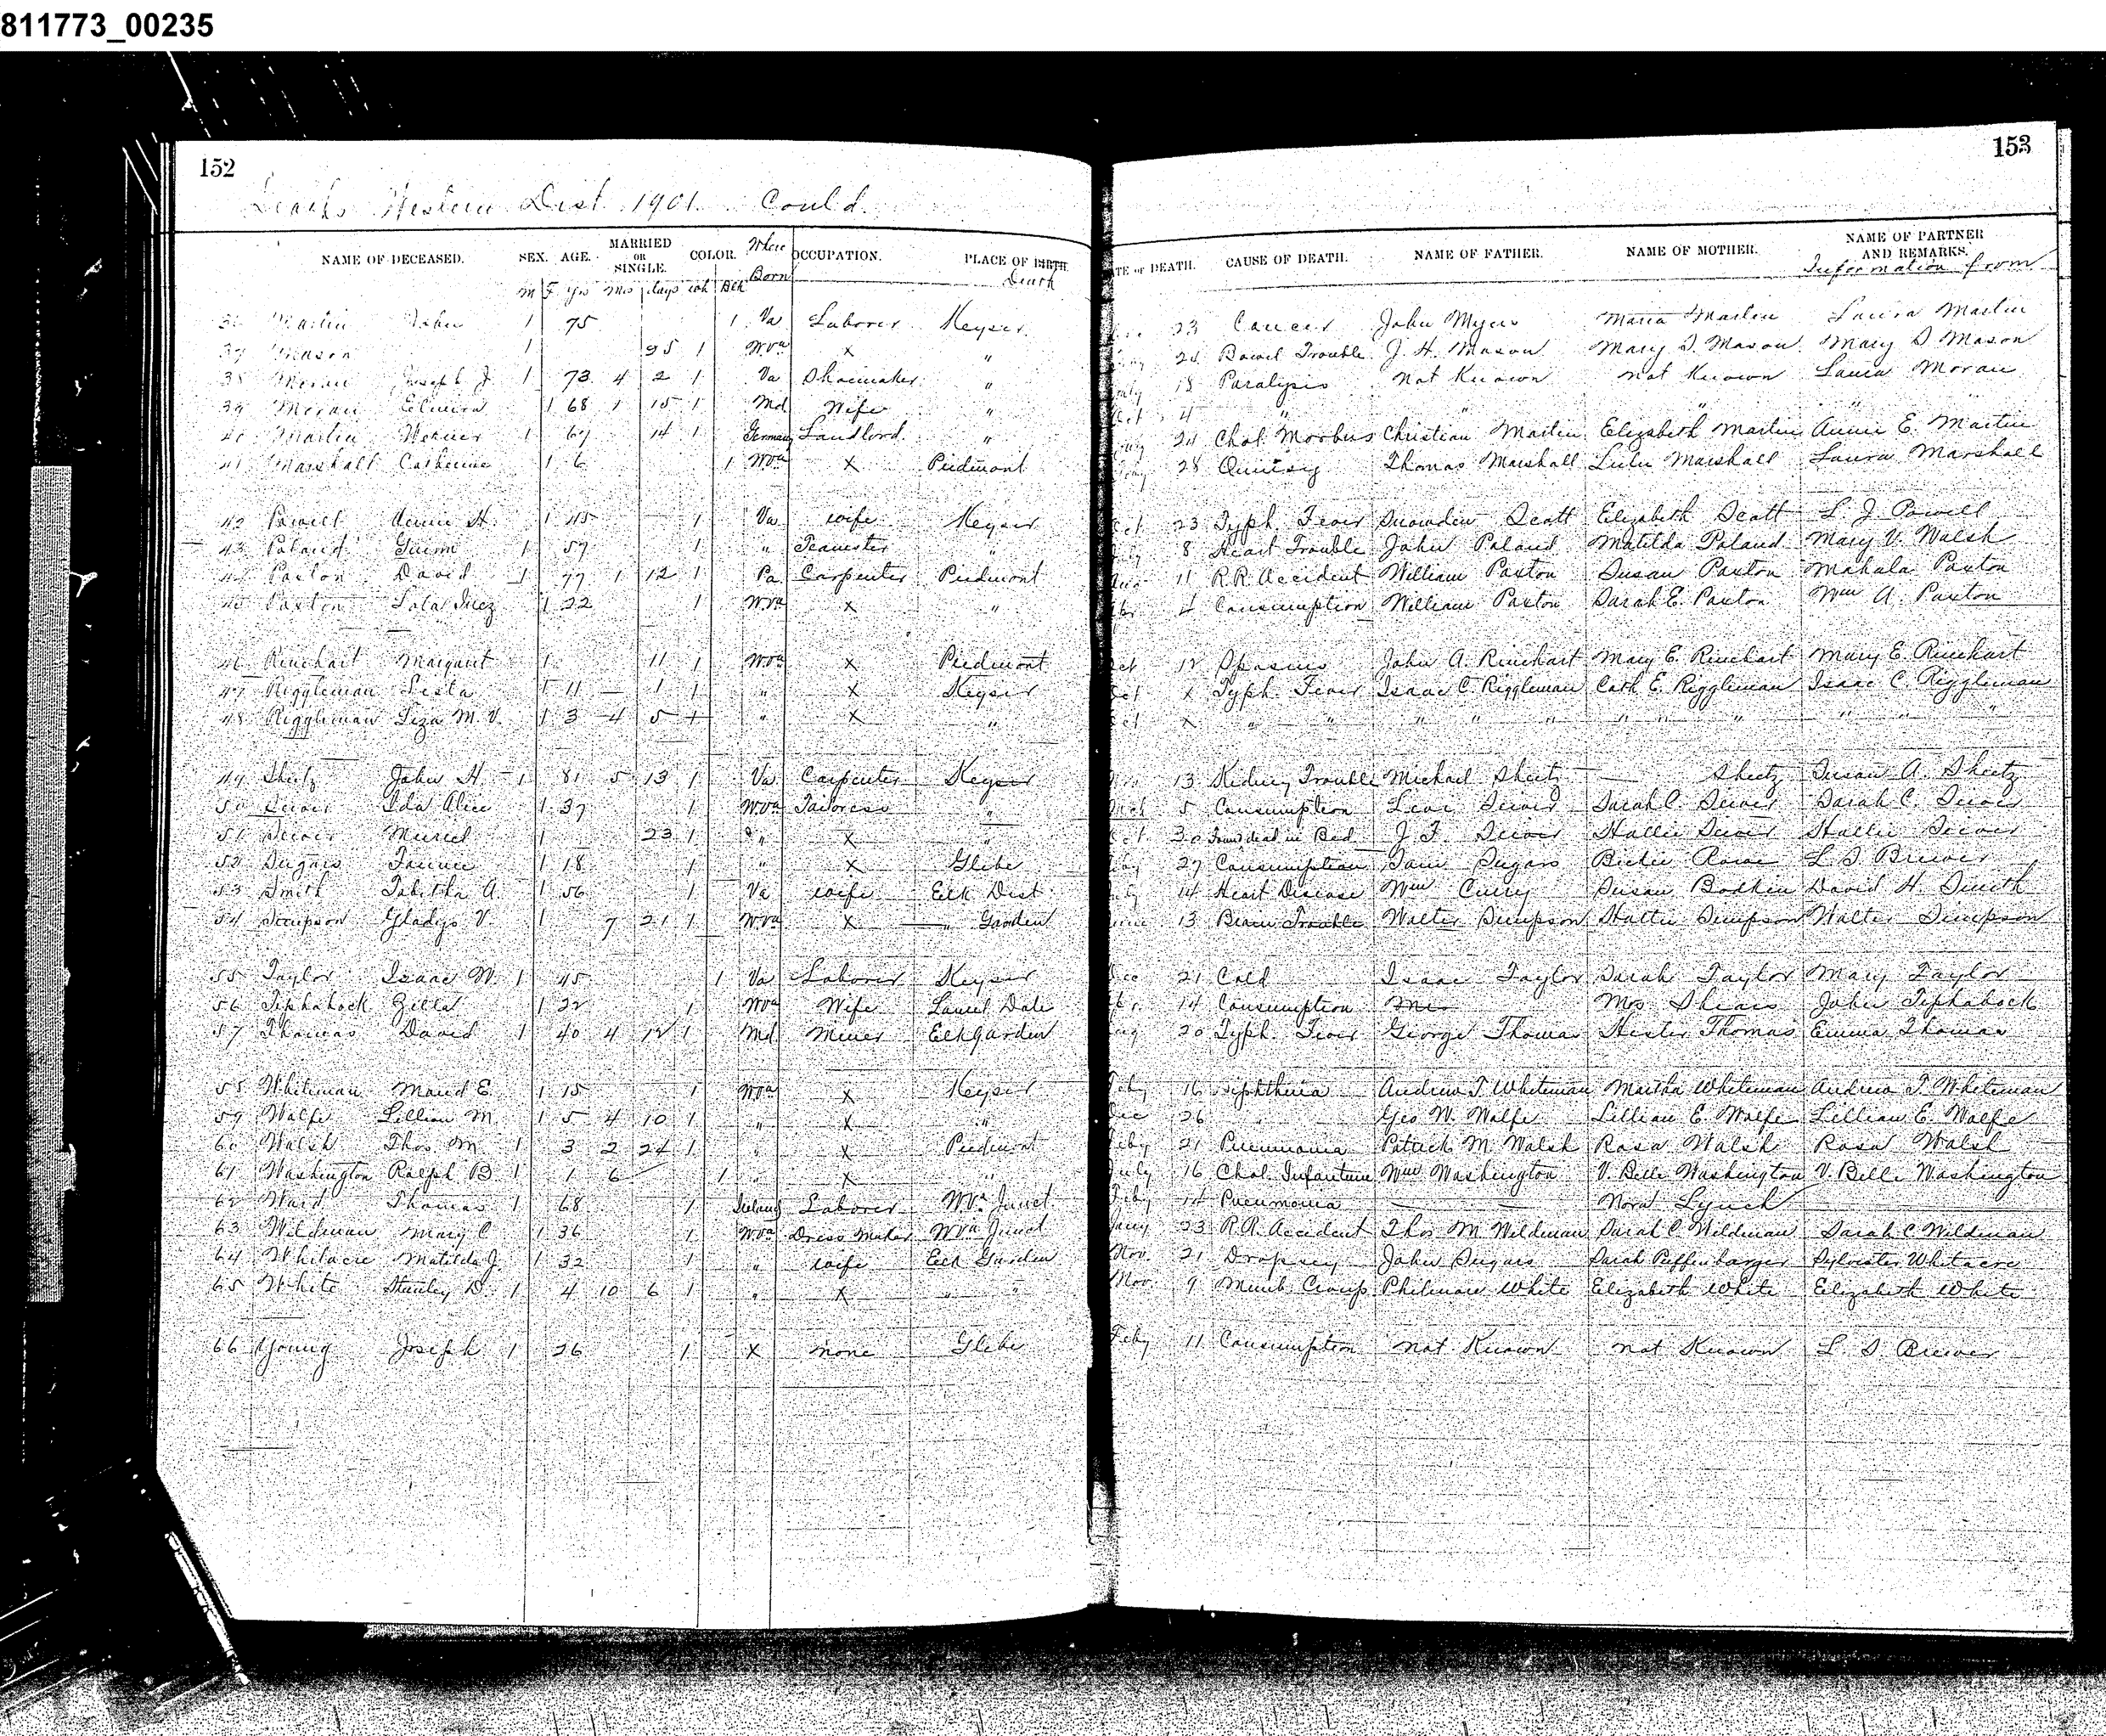 811773_00235
152
153
Deaths Western Dist 1901. Cont'd.
NAME OF DECEASED. SEX. AGE. MARRIED OR SINGLE. COLOR. Where Born OCCUPATION. PLACE OF BIRTH. Death
TE OF DEATH. CAUSE OF DEATH. NAME OF FATHER. NAME OF MOTHER. NAME OF PARTNER AND REMARKS. Information from
M F Yrs Mos days wh Blk
36 Martin John 1 75 1 Va Laborer Keyser 23 Cancer John Myers Maria Martin Laura Martin
37 Mason 1 25 1 Wva x " 24 Bowel Trouble J. H. Mason Mary S. Mason Mary S Mason
38 Moran Joseph J. 1 73 4 2 1 Va Shoemaker " July 18 Paralysis Not Known Not Known Laura Moran
39 Moran Elmira 1 68 1 15 1 Md Wife " Oct 4 " " " "
40 Martin Werner 1 67 14 1 Germany Landlord " Aug 24 Chol. Morbus Christian Martin Elizabeth Martin Annie E. Martin
41 Marshall Catherine 1 6 1 Wva X Piedmont 28 Quinsy Thomas Marshall Lulu Marshall Laura Marshall
42 Powell Annie H. 1 45 1 Va wife Keyser Oct 23 Typh. Fever Snowden Scott Elizabeth Scott L. J. Powell
43 Poland 1 57 1 " Teamster " 8 Heart Trouble John Poland Matilda Poland Mary V. Walsh
44 Paxton David 1 77 1 12 1 Pa Carpenter Piedmont 11 R.R. Accident William Paxton Susan Paxton Mahala Paxton
45 Paxton Lola Inez 1 22 1 Wva x " 4 Consumption William Paxton Sarah E. Paxton Wm A. Paxton
46 Rinehart Margaret 1 11 1 Wva x Piedmont Oct 12 Spasms John A. Rinehart Mary E. Rinehart Mary E. Rinehart
47 Riggleman Lesta 1 11 — 1 1 " X Keyser Oct x Typh. Fever Isaac C. Riggleman Cath E. Riggleman Isaac C. Riggleman
48 Riggleman Liza M. V. 1 3 4 5 1 " X " Oct x " " " " " " " " " " "
49 Sheetz John H. 1 81 5 13 1 Va Carpenter Keyser 13 Kidney Trouble Michael Sheetz — Sheetz Susan A. Sheetz
50 Ida Alice 1 37 1 Wva Tailoress " Mch 5 Consumption Levi Sarah C. Sarah C.
51 Muriel 1 23 1 " X " Oct 30 Found dead in Bed J. F. Hallie Hallie
52 Sugars Fannie 1 18 1 " X Glebe 27 Consumption Sam Sugars L. S. Brewer
53 Smith Tabitha A. 1 56 1 Va wife Elk Dist July 14 Heart Disease Wm Curry Susan Bodkin David H. Smith
54 Simpson Gladys V. 1 7 21 1 Wva X " Garden June 13 Brain Trouble Walter Simpson Hattie Simpson Walter Simpson
55 Taylor Isaac W. 1 45 1 Va Laborer Keyser Dec 21 Cold Isaac Taylor Sarah Taylor Mary Taylor
56 Tephabock Zella 1 22 1 Wva Wife Laurel Dale 14 Consumption Mr Mrs Shears John Tephabock
57 Thomas David 1 40 4 12 1 Md Miner Elkgarden Aug 20 Typh. Fever George Thomas Hester Thomas Emma Thomas
58 Whiteman Maud E. 1 15 1 Wva x Keyser Feby 16 Diphtheria Andrew T. Whiteman Martha Whiteman Andrew T. Whiteman
59 Wolfe Lillian M. 1 5 4 10 1 " X " Dec 26 " Geo W. Wolfe Lillian E. Wolfe Lillian E. Wolfe
60 Walsh Thos. M 1 3 2 24 1 " X Piedmont Feby 21 Pneumonia Patrick M. Walsh Rosa Walsh Rosa Walsh
61 Washington Ralph B 1 1 6 1 " X " July 16 Chol. Infantum Wm Washington V. Belle Washington V. Belle Washington
62 Ward Thomas 1 68 1 Ireland Laborer W Va Junct. Feby 14 Pneumonia — Nora Lynch
63 Wildman Mary C 1 36 1 Wva Dress Maker Wva Junct Jany 23 R.R. Accident Thos. M Wildman Sarah C Wildman Sarah C Wildman
64 Whitacre Matilda J. 1 32 1 " wife Elk Garden Nov 21 Dropsey John Sugars Sarah Puffenbarger Sylvester Whitacre
65 White Stanley D. 1 4 10 6 1 " X " " Nov. 9 Memb. Croup Philmore White Elizabeth White Elizabeth White
66 Young Joseph 1 26 1 X none Glebe Feby 11 Consumption Not Known Not Known L. S. Brewer